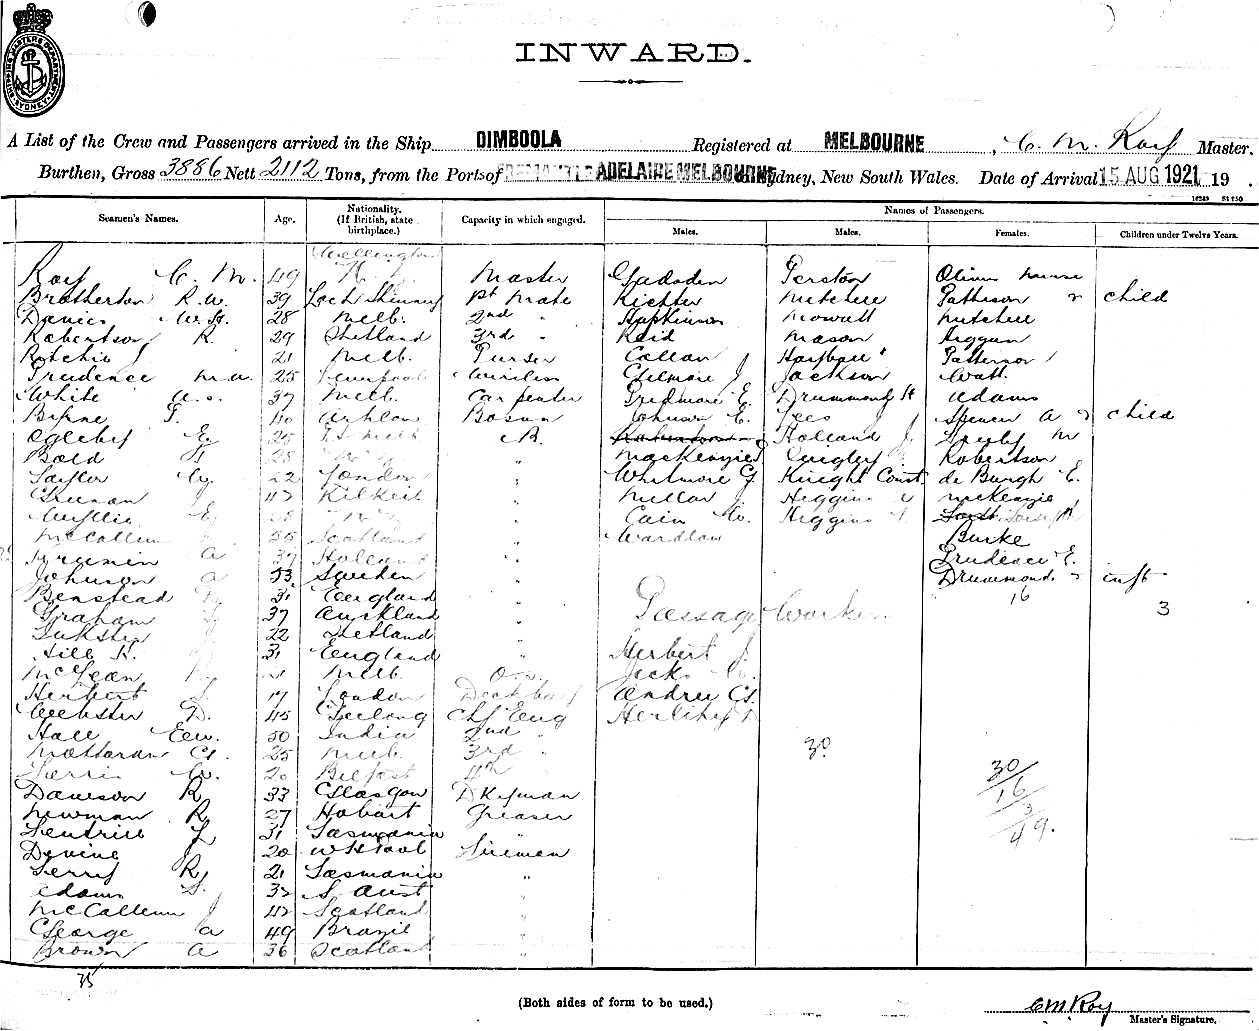 INWARD.
A List of the Crew and Passengers arrived in the Ship DIMBOOLA Registered at MELBOURNE, C. M. Roy Master.
Burthen, Gross 3886 Nett 2112 Tons, from the Ports of FREMANTLE ADELAIDE MELBOURNE Sydney, New South Wales. Date of Arrival 15 AUG 1921 19 .
Seamen's Names. Age. Nationality. (If British, state birthplace.) Capacity in which engaged. Names of Passengers.
Males. Males. Females. Children under Twelve Years.
Wellington
Roy C. M. 49 N. Z. Master Gadsden Perston
Brotherton R. W. 39 1st Mate Richter Mitchell Patterson & child
Davies W. H. 28 Melb. 2nd " Hopkinson Mowett Mitchell
Robertson R. 29 Shetland 3rd " Reid Mason
Ritchie J 21 Melb. Purser Callan J
Prudence M. A. 25 Liverpool Wireless Gilmore J. Jackson Watt
White A. S. 37 Melb. Carpenter Pridmore E. Drummond H Adams
Byrne P. 40 Arklow Bosun Johnson E. Lees J Spencer A & child
Ogleby E 25 Melb AB. Robertson Holland J.
Bold 28 " MacKenzie Quigley Robertson
Taylor W. 22 London " Whitmore G Knight Const de Burgh E.
42 " Millar J. Higgins McKenzie
Wyllie E " Cain W. Higgins
McCallum 55 Scotland " Wardlaw Burke
A 37 Holland Prudence E.
Johnson A 53 Sweden " Drummond & inft
Benstead 31 England " 16
Graham 37 Auckland " Passage Workers 3
22 Shetland "
Hill H. 31 England " Herbert J.
McLean Melb. O.S. Jacks W.
Herbert J. 17 London Deck boy Andrew G.
Webster D. 45 Geelong Chf Eng Herlihy
Hall E.W. 50 India 2nd "
25 Melb. 3rd " 30
W. 20 Belfast 4th " 30
Dawson R 33 Glasgow Dkyman 16
Newman R 27 Hobart Greaser 3
L 31 Tasmania " 49.
Devine J 20 Firemen
Terry R 21 Tasmania "
Adams S. 32 S. Aust "
McCallum J 42 Scotland "
George A 49 Brazil "
Brown A 36 Scotland "
35
(Both sides of form to be used.)
C M Roy
Master's Signature.